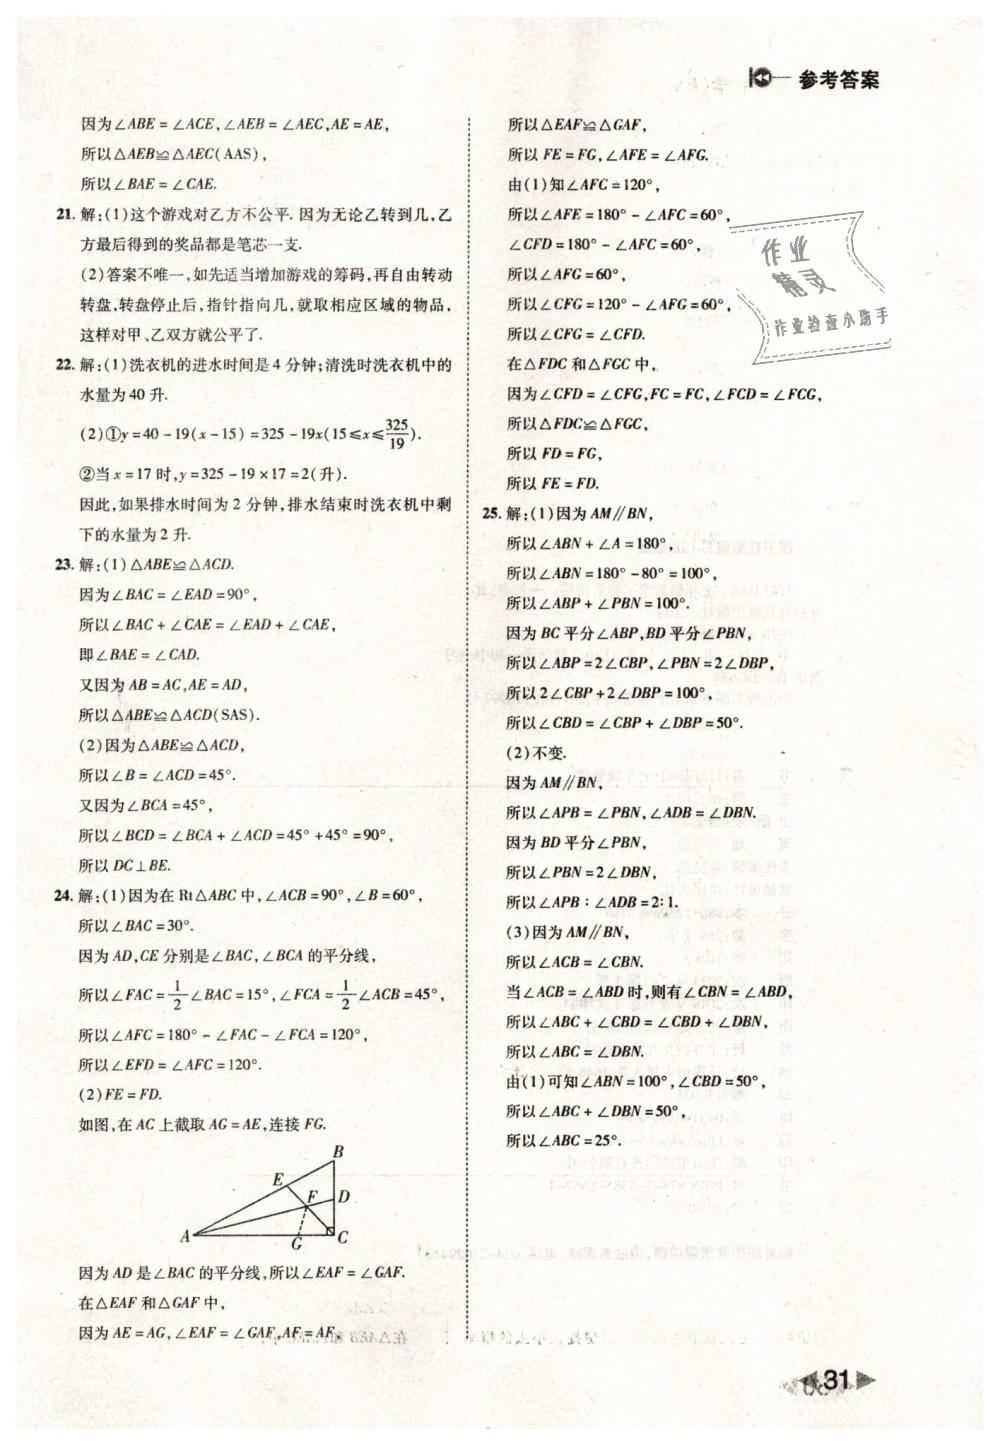 参考答案
因为∠ABE=∠ACE,∠AEB=∠AEC,AE=AE,
所以△AEB≌△AEC(AAS),
所以∠BAE=∠CAE.
21. 解:(1)这个游戏对乙方不公平. 因为无论乙转到几,乙
方最后得到的奖品都是笔芯一支.
(2)答案不唯一,如先适当增加游戏的筹码,再自由转动
转盘,转盘停止后,指针指向几,就取相应区域的物品,
这样对甲、乙双方就公平了.
22. 解:(1)洗衣机的进水时间是4分钟;清洗时洗衣机中的
水量为40升.
(2)①y=40-19(x-15)=325-19x(15≤x≤325/19).
②当x=17时,y=325-19×17=2(升).
因此,如果排水时间为2分钟,排水结束时洗衣机中剩
下的水量为2升.
23. 解:(1)△ABE≌△ACD.
因为∠BAC=∠EAD=90°,
所以∠BAC+∠CAE=∠EAD+∠CAE,
即∠BAE=∠CAD.
又因为AB=AC,AE=AD,
所以△ABE≌△ACD(SAS).
(2)因为△ABE≌△ACD,
所以∠B=∠ACD=45°.
又因为∠BCA=45°,
所以∠BCD=∠BCA+∠ACD=45°+45°=90°,
所以DC⊥BE.
24. 解:(1)因为在Rt△ABC中,∠ACB=90°,∠B=60°,
所以∠BAC=30°.
因为AD,CE分别是∠BAC,∠BCA的平分线,
所以∠FAC=1/2∠BAC=15°,∠FCA=1/2∠ACB=45°,
所以∠AFC=180°-∠FAC-∠FCA=120°,
所以∠EFD=∠AFC=120°.
(2)FE=FD.
如图,在AC上截取AG=AE,连接FG.
B
E
F
D
A
G
C
因为AD是∠BAC的平分线,所以∠EAF=∠GAF.
在△EAF和△GAF中,
因为AE=AG,∠EAF=∠GAF,AF=AF,
所以△EAF≌△GAF,
所以FE=FG,∠AFE=∠AFG.
由(1)知∠AFC=120°,
所以∠AFE=180°-∠AFC=60°,
∠CFD=180°-∠AFC=60°,
所以∠AFG=60°,
所以∠CFG=120°-∠AFG=60°,
所以∠CFG=∠CFD.
在△FDC和△FGC中,
因为∠CFD=∠CFG,FC=FC,∠FCD=∠FCG,
所以△FDC≌△FGC,
所以FD=FG,
所以FE=FD.
25. 解:(1)因为AM∥BN,
所以∠ABN+∠A=180°,
所以∠ABN=180°-80°=100°,
所以∠ABP+∠PBN=100°.
因为BC平分∠ABP,BD平分∠PBN,
所以∠ABP=2∠CBP,∠PBN=2∠DBP,
所以2∠CBP+2∠DBP=100°,
所以∠CBD=∠CBP+∠DBP=50°.
(2)不变.
因为AM∥BN,
所以∠APB=∠PBN,∠ADB=∠DBN.
因为BD平分∠PBN,
所以∠PBN=2∠DBN,
所以∠APB∶∠ADB=2∶1.
(3)因为AM∥BN,
所以∠ACB=∠CBN.
当∠ACB=∠ABD时,则有∠CBN=∠ABD,
所以∠ABC+∠CBD=∠CBD+∠DBN,
所以∠ABC=∠DBN.
由(1)可知∠ABN=100°,∠CBD=50°,
所以∠ABC+∠DBN=50°,
所以∠ABC=25°.
作业
精灵
作业检查小助手
31